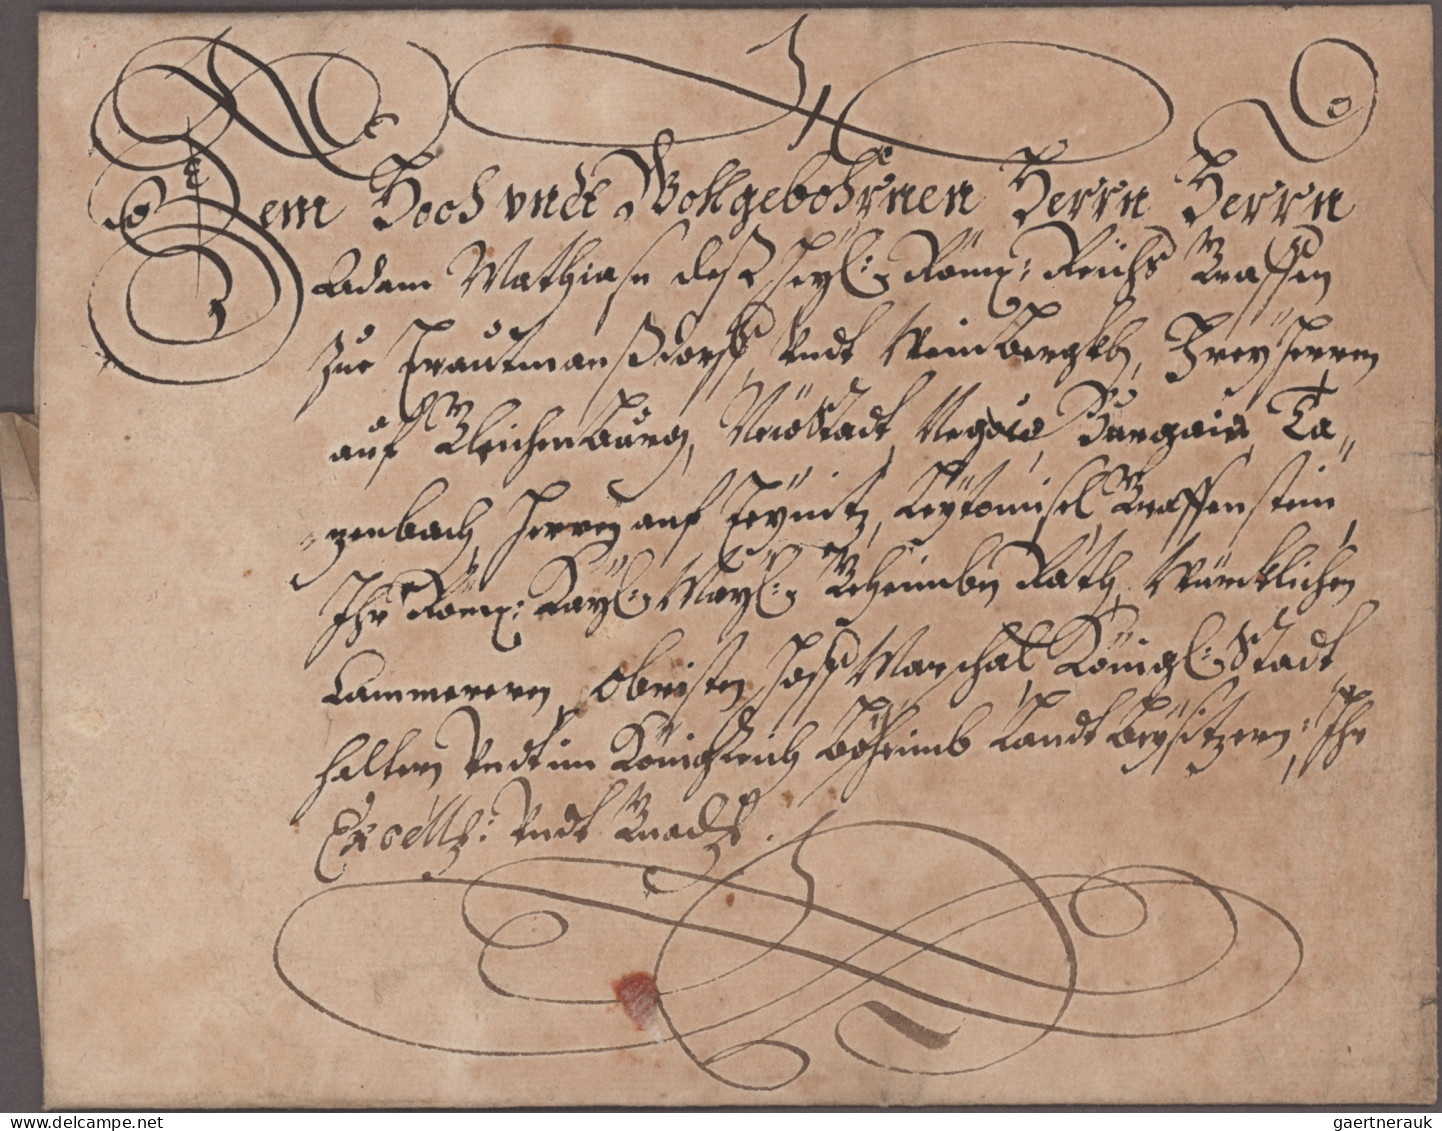 Dem Hoch vndt Wollgebohrnen Herrn Herrn
Adam Mathiasn deß heyl: Röm: Reichs Graffen
Zue Trautmanßdorff, Vndt Weinbergkh, Freyherren
auf Gleichenburg, Neustadt, Negau, Burgau, Ta„
„zenbach, Herren auf Teynitz, Leytomisel, Graffenstein,
Ihr Röm: Kayl: Mayl: Geheimben Rath, Würcklichen
Cammereren, Obristen Hoff Marschal, Königl: Stadt
haltern Vndt im Königreich Böheimb Landt Beysitzern; Ihr
Excellz: Vndt Gnadt.
delcampe.net
gaertnerauk